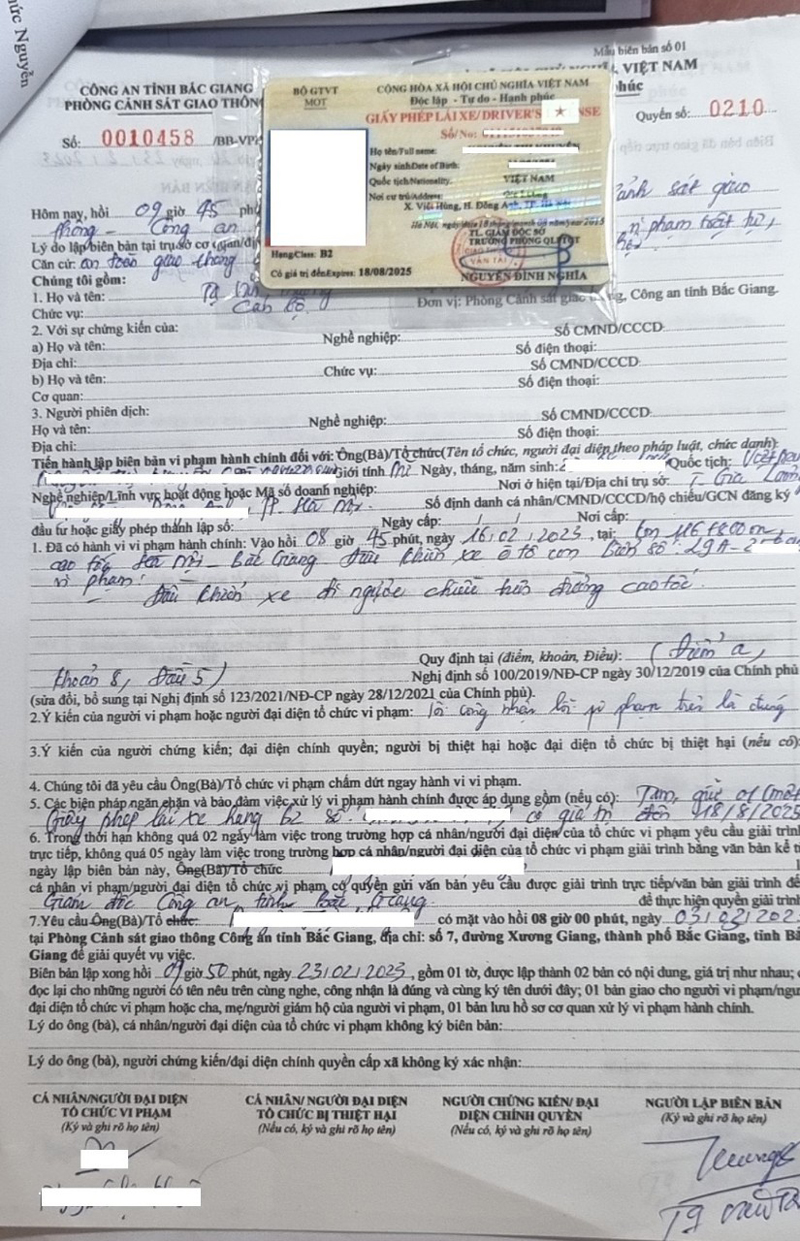 ức Nguyễn
Mẫu biên bản số 01
CÔNG AN TỈNH BẮC GIANG
VIỆT NAM
PHÒNG CẢNH SÁT GIAO THÔN
húc
Số: 0010458 /BB-VP
Quyển số: 0210
BỘ GTVT
MOT
CỘNG HÒA XÃ HỘI CHỦ NGHĨA VIỆT NAM
Độc lập - Tự do - Hạnh phúc
GIẤY PHÉP LÁI XE/DRIVER'S NSE
Số/No:
Họ tên/Full name:
Ngày sinh/Date of Birth:
Quốc tịch/Nationality: VIỆT NAM
Nơi cư trú/Address:
X. Việt Hùng, H. Đông Anh, TP. Hà Nội
TL. GIÁM ĐỐC SỞ
TRƯỞNG PHÒNG QLPT&NL
Hạng/Class: B2
Có giá trị đến/Expires: 18/08/2025
NGUYỄN ĐÌNH NGHĨA
Hôm nay, hồi 09 giờ 45 phú
cảnh sát giao
thông - Công an
Lý do lập biên bản tại trụ sở cơ quan/đị
vi phạm trật tự,
Căn cứ: an toàn giao thông
Chúng tôi gồm:
1. Họ và tên: Tạ Văn
Chức vụ: Cán bộ Đơn vị: Phòng Cảnh sát giao thông, Công an tỉnh Bắc Giang.
2. Với sự chứng kiến của:
a) Họ và tên: Nghề nghiệp: Số CMND/CCCD:
Địa chỉ: Số điện thoại:
b) Họ và tên: Chức vụ: Số CMND/CCCD:
Cơ quan: Số điện thoại:
3. Người phiên dịch:
Họ và tên: Nghề nghiệp: Số CMND/CCCD:
Địa chỉ: Số điện thoại:
Tiến hành lập biên bản vi phạm hành chính đối với: Ông(Bà)/Tổ chức(Tên tổ chức, người đại diện theo pháp luật, chức danh):
Giới tính Ngày, tháng, năm sinh: 2 Quốc tịch: Việt Nam
Nghề nghiệp/Lĩnh vực hoạt động hoặc Mã số doanh nghiệp: Nơi ở hiện tại/Địa chỉ trụ sở:
TP. Hà Nội Số định danh cá nhân/CMND/CCCD/hộ chiếu/GCN đăng ký
đầu tư hoặc giấy phép thành lập số: Ngày cấp: / / Nơi cấp:
1. Đã có hành vi vi phạm hành chính: Vào hồi 08 giờ 45 phút, ngày 16/02/2023, tại: Km 116+800m,
cao tốc Hà Nội - Bắc Giang Điều khiển xe ô tô con Biển số: 29A-2
vi phạm:
- Điều khiển xe đi ngược chiều trên đường cao tốc.
Quy định tại (điểm, khoản, Điều): (Điểm a,
khoản 8, Điều 5) Nghị định số 100/2019/NĐ-CP ngày 30/12/2019 của Chính phủ
(sửa đổi, bổ sung tại Nghị định số 123/2021/NĐ-CP ngày 28/12/2021 của Chính phủ).
2.Ý kiến của người vi phạm hoặc người đại diện tổ chức vi phạm: Tôi công nhận lỗi vi phạm trên là đúng
3.Ý kiến của người chứng kiến; đại diện chính quyền; người bị thiệt hại hoặc đại diện tổ chức bị thiệt hại (nếu có):
4. Chúng tôi đã yêu cầu Ông(Bà)/Tổ chức vi phạm chấm dứt ngay hành vi vi phạm.
5. Các biện pháp ngăn chặn và bảo đảm việc xử lý vi phạm hành chính được áp dụng gồm (nếu có): Tạm giữ 01 (một)
Giấy phép lái xe hạng B2 số: có giá trị đến 18/8/2025
6. Trong thời hạn không quá 02 ngày làm việc trong trường hợp cá nhân/người đại diện của tổ chức vi phạm yêu cầu giải trình
trực tiếp, không quá 05 ngày làm việc trong trường hợp cá nhân/người đại diện của tổ chức vi phạm giải trình bằng văn bản kể t
ngày lập biên bản này, Ông(Bà)/Tổ chức
cá nhân vi phạm/người đại diện tổ chức vi phạm có quyền gửi văn bản yêu cầu được giải trình trực tiếp/văn bản giải trình đế
Giám đốc Công an tỉnh Bắc Giang. để thực hiện quyền giải trình
7.Yêu cầu Ông(Bà)/Tổ chức: có mặt vào hồi 08 giờ 00 phút, ngày 03/03/202
tại Phòng Cảnh sát giao thông Công an tỉnh Bắc Giang, địa chỉ: số 7, đường Xương Giang, thành phố Bắc Giang, tỉnh Bắ
Giang để giải quyết vụ việc.
Biên bản lập xong hồi 09 giờ 50 phút, ngày 23/02/2023, gồm 01 tờ, được lập thành 02 bản có nội dung, giá trị như nhau;
đọc lại cho những người có tên nêu trên cùng nghe, công nhận là đúng và cùng ký tên dưới đây; 01 bản giao cho người vi phạm/ngư
đại diện tổ chức vi phạm hoặc cha, mẹ/người giám hộ của người vi phạm, 01 bản lưu hồ sơ cơ quan xử lý vi phạm hành chính.
Lý do ông (bà), cá nhân/người đại diện của tổ chức vi phạm không ký biên bản:
Lý do ông (bà), người chứng kiến/đại diện chính quyền cấp xã không ký xác nhận:
CÁ NHÂN/NGƯỜI ĐẠI DIỆN
TỔ CHỨC VI PHẠM
(Ký và ghi rõ họ tên)
CÁ NHÂN/ NGƯỜI ĐẠI DIỆN
TỔ CHỨC BỊ THIỆT HẠI
(Nếu có, ký và ghi rõ họ tên)
NGƯỜI CHỨNG KIẾN/ ĐẠI
DIỆN CHÍNH QUYỀN
(Nếu có, ký và ghi rõ họ tên)
NGƯỜI LẬP BIÊN BẢN
(Ký và ghi rõ họ tên)